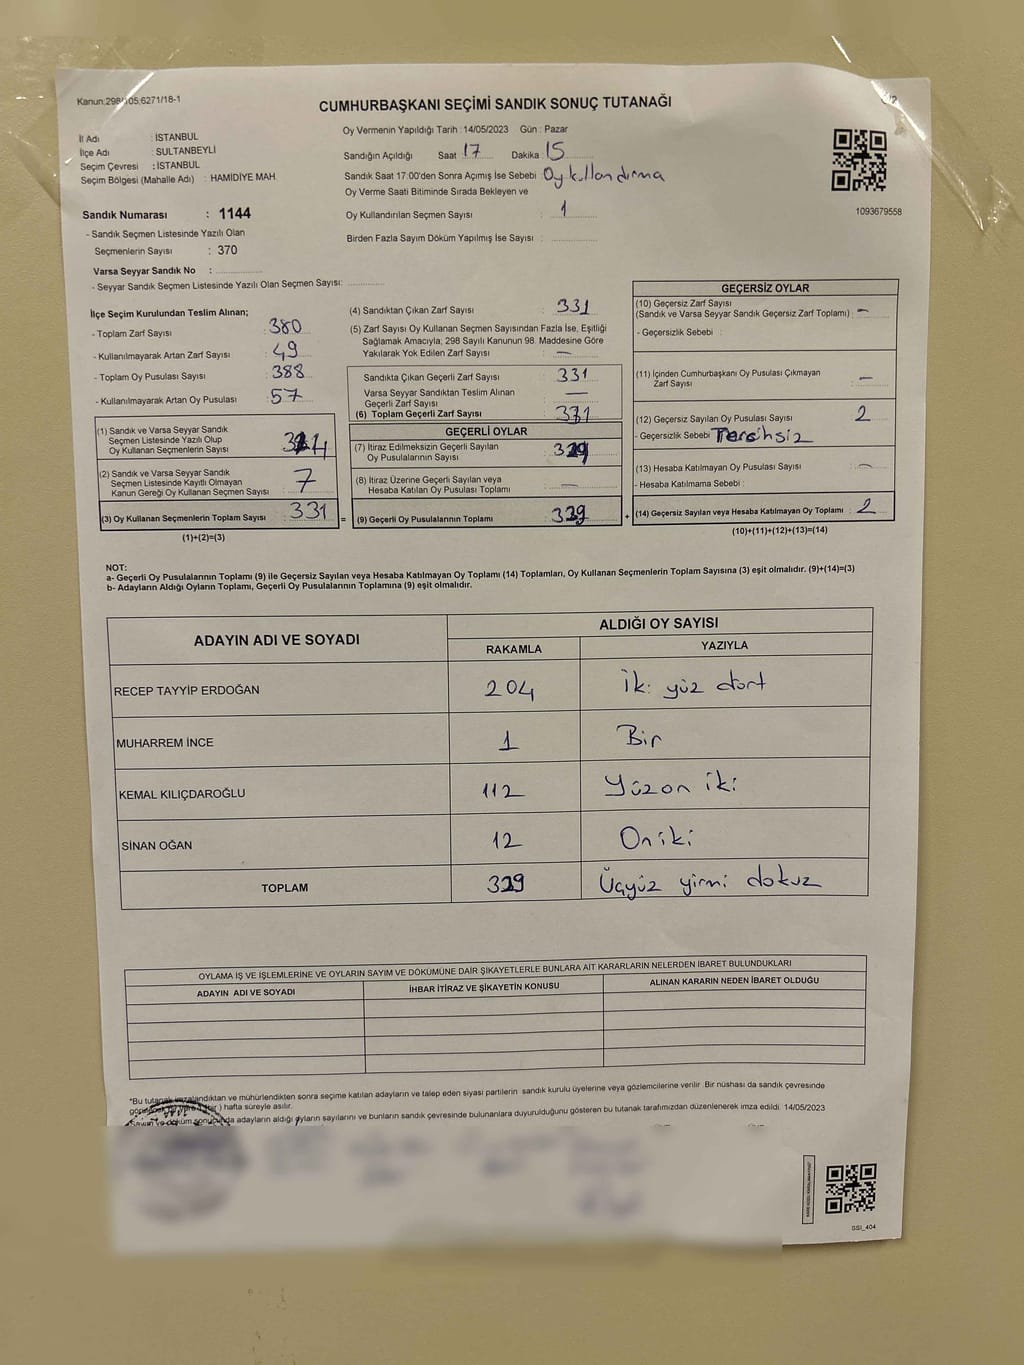 Kanun:298/105;6271/18-1
CUMHURBAŞKANI SEÇİMİ SANDIK SONUÇ TUTANAĞI
İl Adı : İSTANBUL
İlçe Adı : SULTANBEYLİ
Seçim Çevresi : İSTANBUL
Seçim Bölgesi (Mahalle Adı) : HAMİDİYE MAH.
Sandık Numarası : 1144
- Sandık Seçmen Listesinde Yazılı Olan
Seçmenlerin Sayısı : 370
Varsa Seyyar Sandık No :
- Seyyar Sandık Seçmen Listesinde Yazılı Olan Seçmen Sayısı:
Oy Vermenin Yapıldığı Tarih : 14/05/2023 Gün : Pazar
Sandığın Açıldığı Saat 17 Dakika 15
Sandık Saat 17:00'den Sonra Açımış İse Sebebi Oy kullandırma
Oy Verme Saati Bitiminde Sırada Bekleyen ve
Oy Kullandırılan Seçmen Sayısı : 1
Birden Fazla Sayım Döküm Yapılmış İse Sayısı :
1093679558
İlçe Seçim Kurulundan Teslim Alınan;
- Toplam Zarf Sayısı : 380
- Kullanılmayarak Artan Zarf Sayısı : 49
- Toplam Oy Pusulası Sayısı : 388
- Kullanılmayarak Artan Oy Pusulası : 57
(1) Sandık ve Varsa Seyyar Sandık
Seçmen Listesinde Yazılı Olup
Oy Kullanan Seçmenlerin Sayısı :
(2) Sandık ve Varsa Seyyar Sandık
Seçmen Listesinde Kayıtlı Olmayan
Kanun Gereği Oy Kullanan Seçmen Sayısı : 7
(3) Oy Kullanan Seçmenlerin Toplam Sayısı : 331
(1)+(2)=(3)
(4) Sandıktan Çıkan Zarf Sayısı : 331
(5) Zarf Sayısı Oy Kullanan Seçmen Sayısından Fazla İse, Eşitliği
Sağlamak Amacıyla; 298 Sayılı Kanunun 98. Maddesine Göre
Yakılarak Yok Edilen Zarf Sayısı : —
Sandıkta Çıkan Geçerli Zarf Sayısı : 331
Varsa Seyyar Sandıktan Teslim Alınan
Geçerli Zarf Sayısı : —
(6) Toplam Geçerli Zarf Sayısı : 331
GEÇERLİ OYLAR
(7) İtiraz Edilmeksizin Geçerli Sayılan
Oy Pusulalarının Sayısı : 329
(8) İtiraz Üzerine Geçerli Sayılan veya
Hesaba Katılan Oy Pusulası Toplamı : —
= (9) Geçerli Oy Pusulalarının Toplamı : 329
GEÇERSİZ OYLAR
(10) Geçersiz Zarf Sayısı
(Sandık ve Varsa Seyyar Sandık Geçersiz Zarf Toplamı) : —
- Geçersizlik Sebebi :
(11) İçinden Cumhurbaşkanı Oy Pusulası Çıkmayan
Zarf Sayısı : —
(12) Geçersiz Sayılan Oy Pusulası Sayısı : 2
- Geçersizlik Sebebi : Tercihsiz
(13) Hesaba Katılmayan Oy Pusulası Sayısı : —
- Hesaba Katılmama Sebebi :
+ (14) Geçersiz Sayılan veya Hesaba Katılmayan Oy Toplamı : 2
(10)+(11)+(12)+(13)=(14)
NOT:
a- Geçerli Oy Pusulalarının Toplamı (9) ile Geçersiz Sayılan veya Hesaba Katılmayan Oy Toplamı (14) Toplamları, Oy Kullanan Seçmenlerin Toplam Sayısına (3) eşit olmalıdır. (9)+(14)=(3)
b- Adayların Aldığı Oyların Toplamı, Geçerli Oy Pusulalarının Toplamına (9) eşit olmalıdır.
ADAYIN ADI VE SOYADI ALDIĞI OY SAYISI
RAKAMLA YAZIYLA
RECEP TAYYİP ERDOĞAN 204 İki yüz dört
MUHARREM İNCE 1 Bir
KEMAL KILIÇDAROĞLU 112 Yüzon iki
SİNAN OĞAN 12 Oniki
TOPLAM 329 Üçyüz yirmi dokuz
OYLAMA İŞ VE İŞLEMLERİNE VE OYLARIN SAYIM VE DÖKÜMÜNE DAİR ŞİKAYETLERLE BUNLARA AİT KARARLARIN NELERDEN İBARET BULUNDUKLARI
ADAYIN ADI VE SOYADI İHBAR İTİRAZ VE ŞİKAYETİN KONUSU ALINAN KARARIN NEDEN İBARET OLDUĞU
*Bu tutanak imzalandıktan ve mühürlendikten sonra seçime katılan adayların ve talep eden siyasi partilerin sandık kurulu üyelerine veya gözlemcilerine verilir. Bir nüshası da sandık çevresinde
hafta süreyle asılır.
adayların aldığı oyların sayılarını ve bunların sandık çevresinde bulunanlara duyurulduğunu gösteren bu tutanak tarafımızdan düzenlenerek imza edildi. 14/05/2023
SSI_404